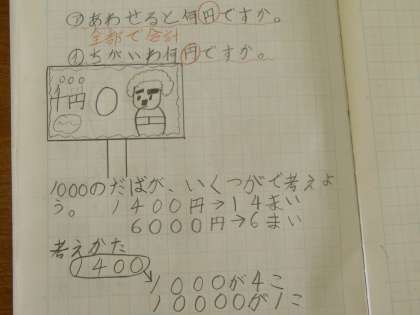 ③あわせると何円ですか。
全部で合計
④ちがいわ何円ですか。
1000のだばが、いくつがで考えよ
う。 1400円→14まい
6000円→6まい
考えかた
1400
1000が4こ
10000が1こ